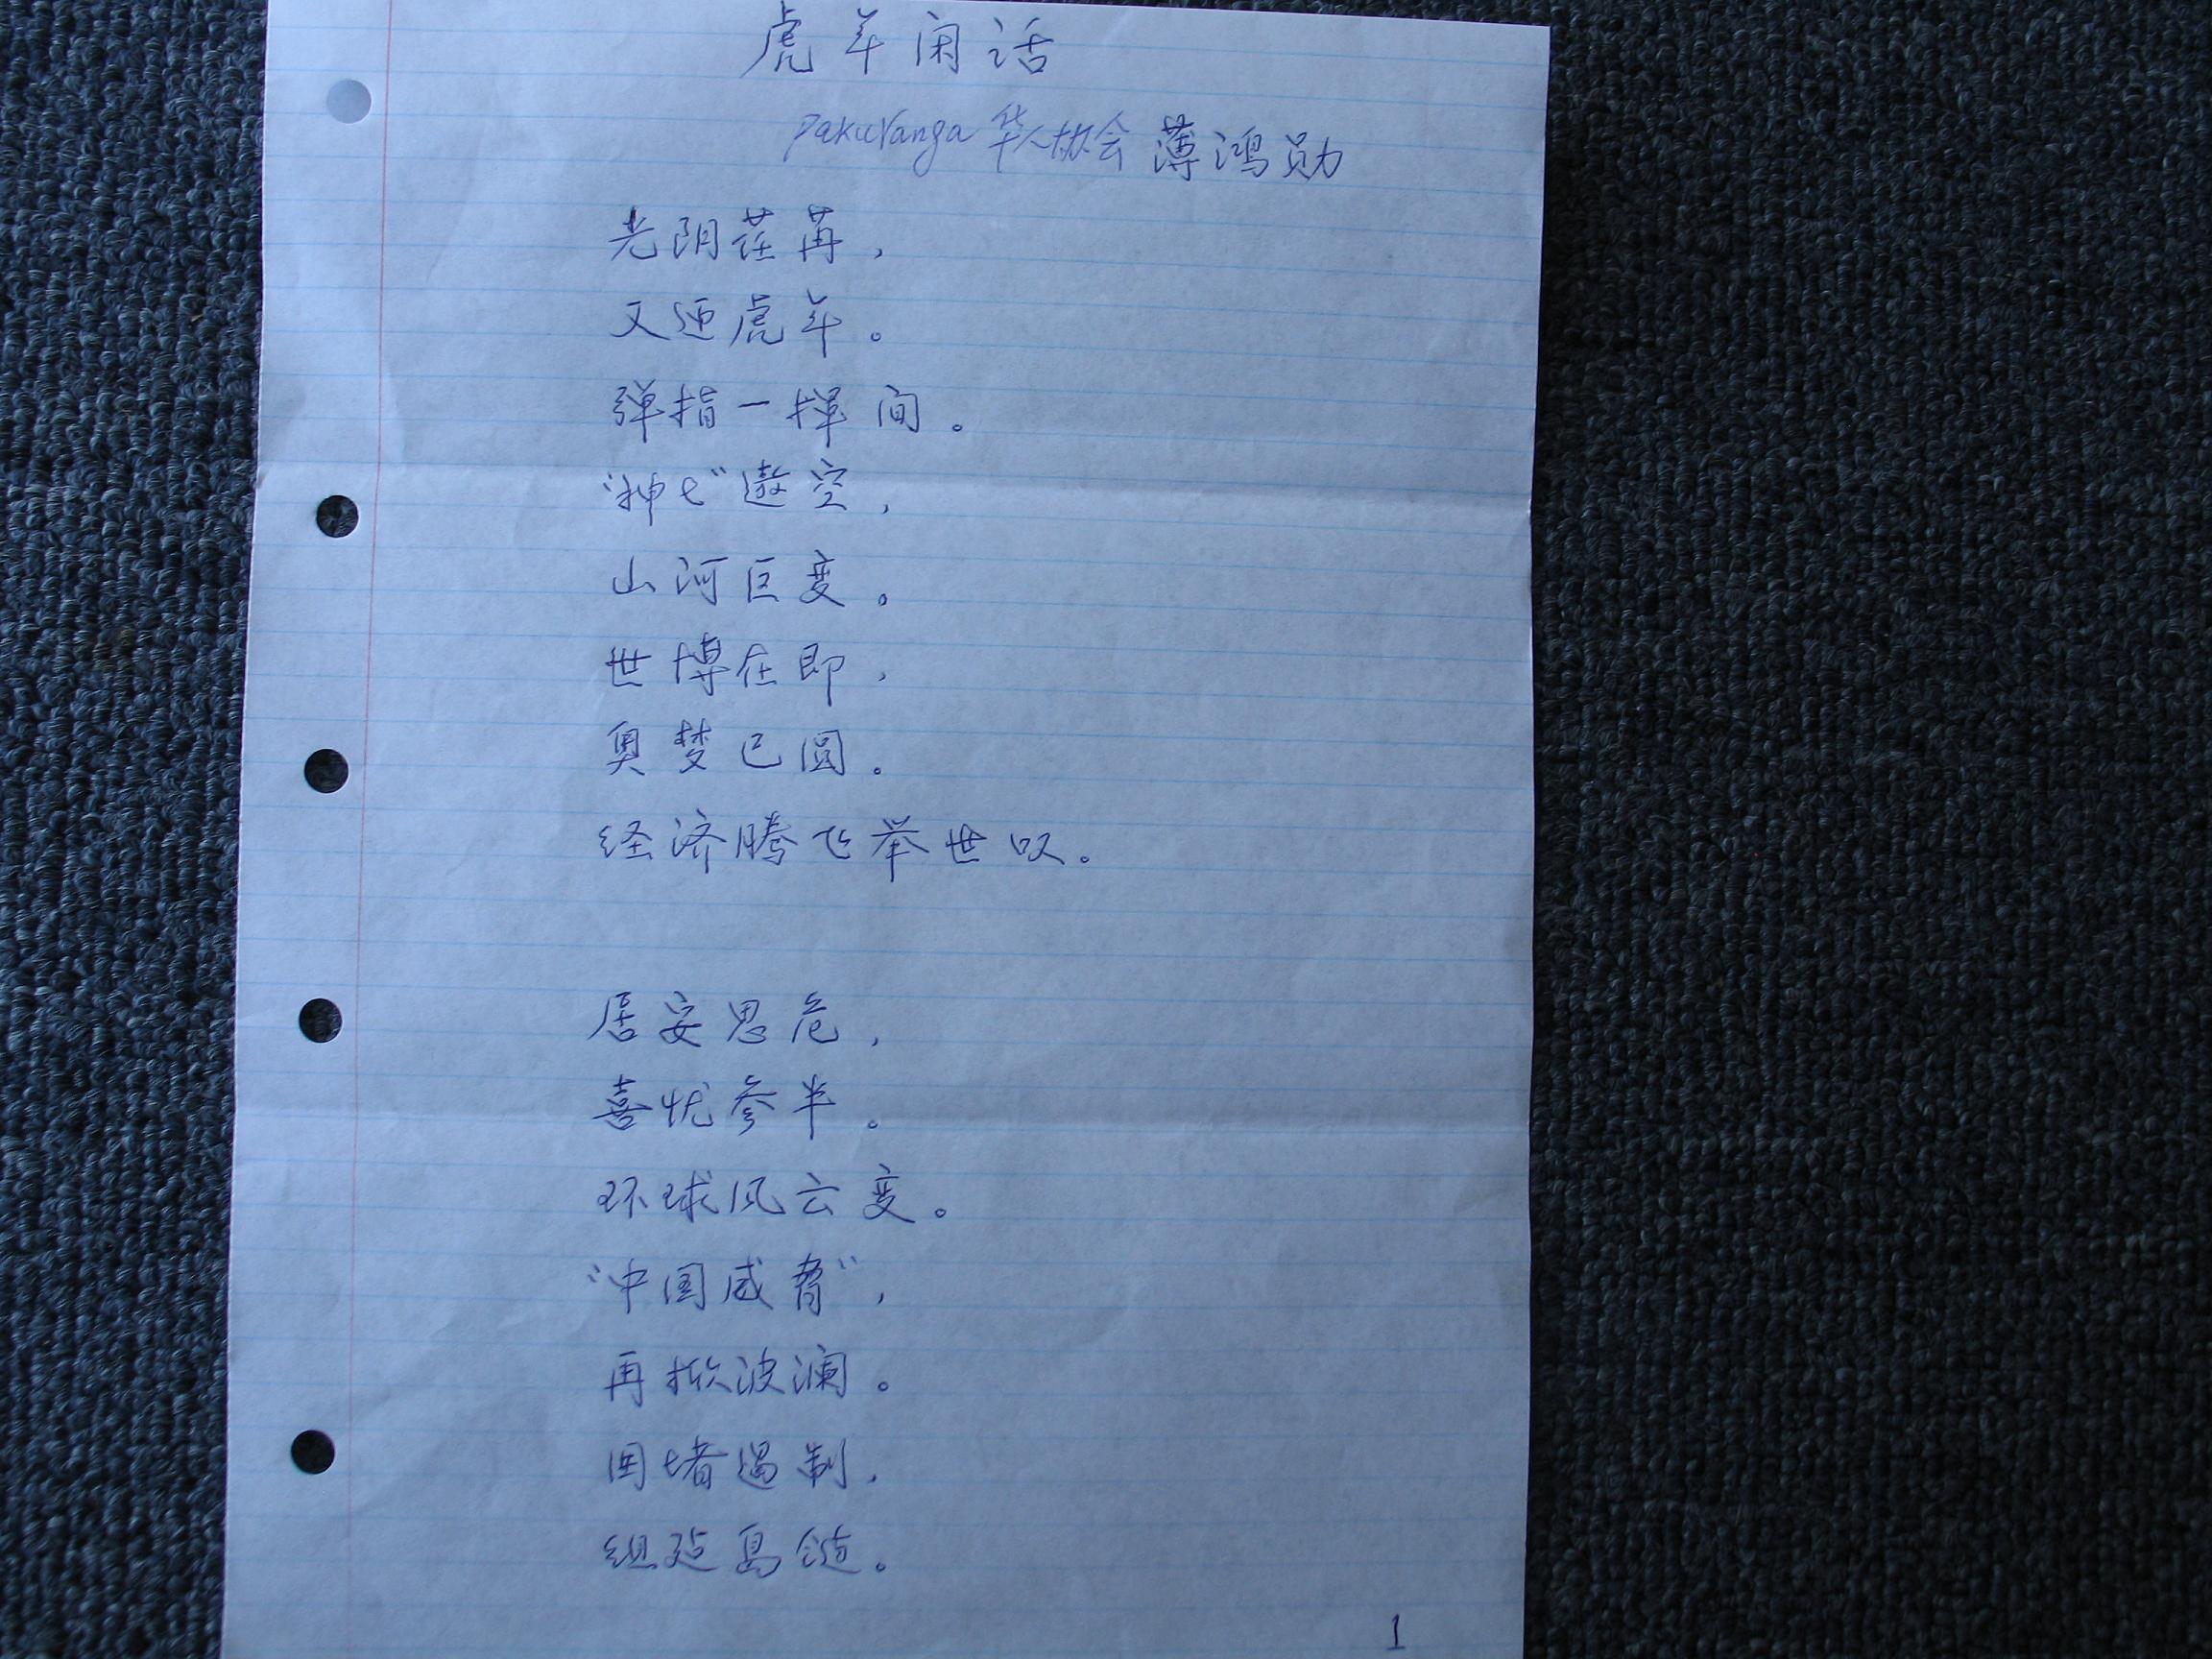 虎年闲话
Pakuranga 华人协会 薄鸿勋
光阴荏苒，
又迎虎年。
弹指一挥间。
“神七”遨空，
山河巨变。
世博在即，
奥梦已圆。
经济腾飞举世叹。
居安思危，
喜忧参半。
环球风云变。
“中国威胁”，
再掀波澜。
围堵遏制，
组建岛链。
1